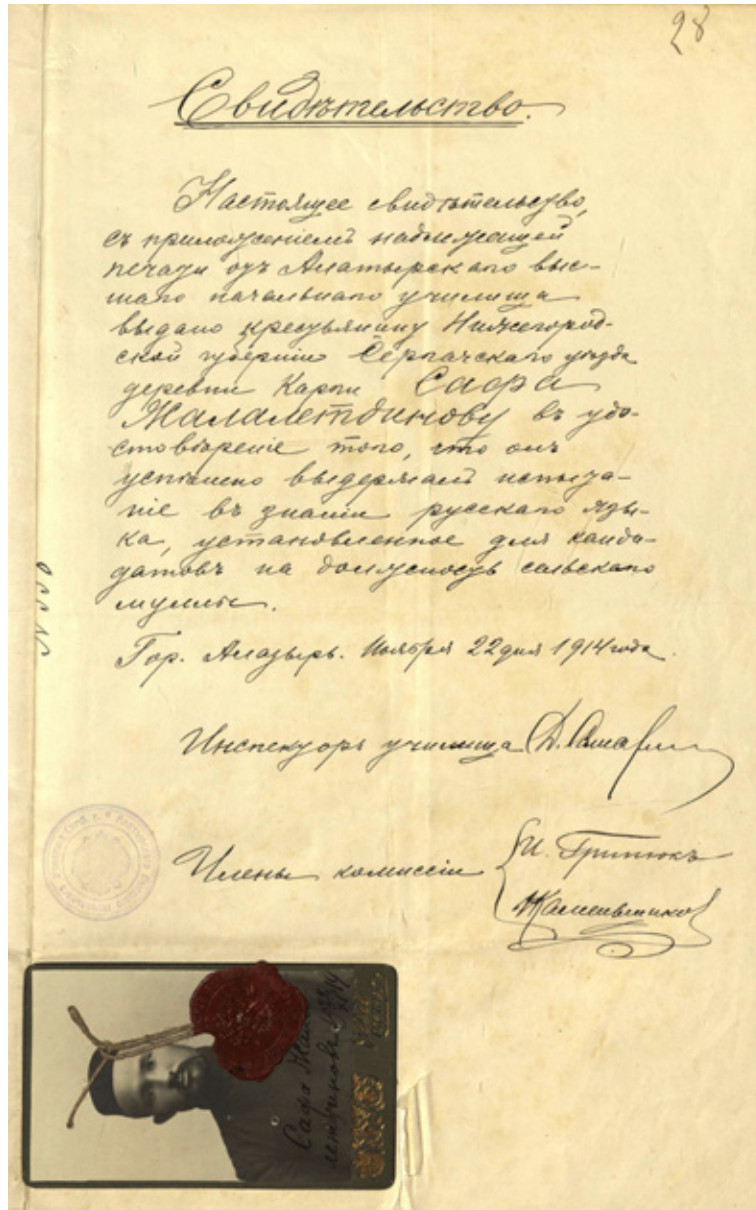 28
Свидѣтельство.
Настоящее свидѣтельство,
съ приложеніемъ надлежащей
печати отъ Алатырскаго выс-
шаго начальнаго училища
выдано крестьянину Нижегород-
ской губерніи Сергачскаго уѣзда
деревни Карги Сафа
Жалалетдинову въ удо-
стовѣреніе того, что онъ
успѣшно выдержалъ испыта-
ніе въ знаніи русскаго язы-
ка, установленное для канди-
датовъ на должность сельскаго
муллы.
Гор. Алатырь. Ноября 22 дня 1914 года.
№ 550
Инспекторъ училища Д.
Члены комиссіи И. Гритюкъ
Сафа